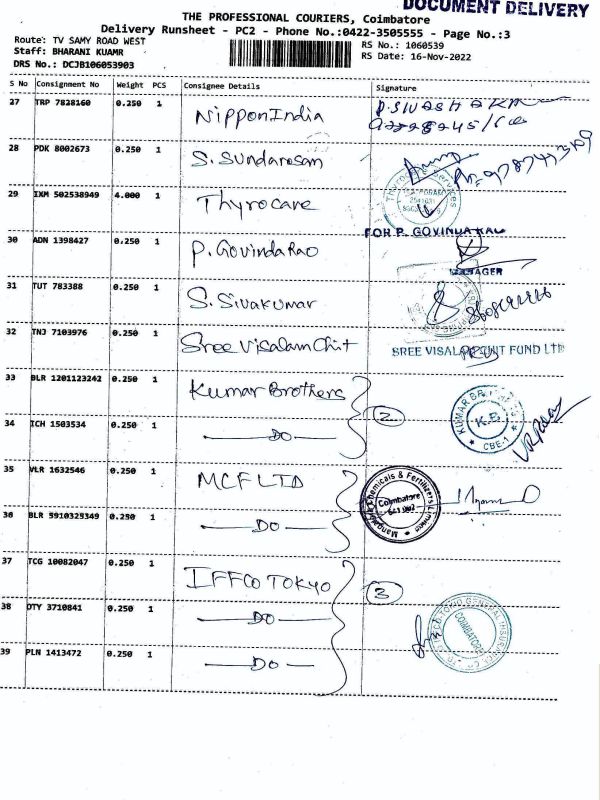 DOCUMENT DELIVERY
THE PROFESSIONAL COURIERS, Coimbatore
Delivery Runsheet - PC2 - Phone No.:0422-3505555 - Page No.:3
Route: TV SAMY ROAD WEST
RS No.: 1060539
Staff: BHARANI KUAMR
RS Date: 16-Nov-2022
DRS No.: DCJB106053903
S No Consignment No Weight PCS Consignee Details Signature
27 TRP 7828160 0.250 1 Nippon India
28 PDK 8002673 0.250 1 S. Sundaresan
29 IXM 502538949 4.000 1 Thyrocare
FOR P. GOVINDA RAO
30 ADN 1398427 0.250 1 P. Govinda Rao
MANAGER
31 TUT 783388 0.250 1 S. Sivakumar
32 TNJ 7103976 0.250 1 Sree Visalam Chit
SREE VISALAM CHIT FUND LTD
33 BLR 1201123242 0.250 1 Kumar Brothers
2
KUMAR BROTHERS
K.B
CBE-1
34 ICH 1503534 0.250 1 DO
35 VLR 1632546 0.250 1 MCF LTD
Mangalore Chemicals & Fertilizers Limited
Coimbatore
641 002
36 BLR 5910325349 0.250 1 DO
37 TCG 10082047 0.250 1 IFFCO TOKYO
3
38 OTY 3710841 0.250 1 DO
IFFCO-TOKIO GENERAL INSURANCE CO
COIMBATORE
39 PLN 1413472 0.250 1 DO